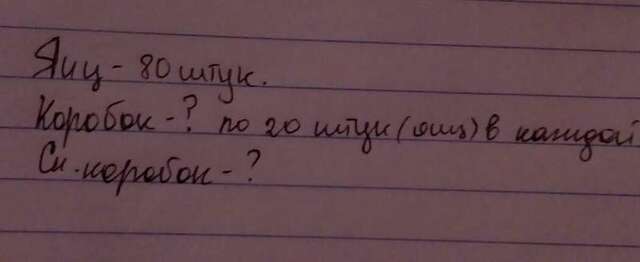 Яиц - 80 штук.
Коробок - ? по 20 штук (яиц) в каждой
Ск. коробок - ?